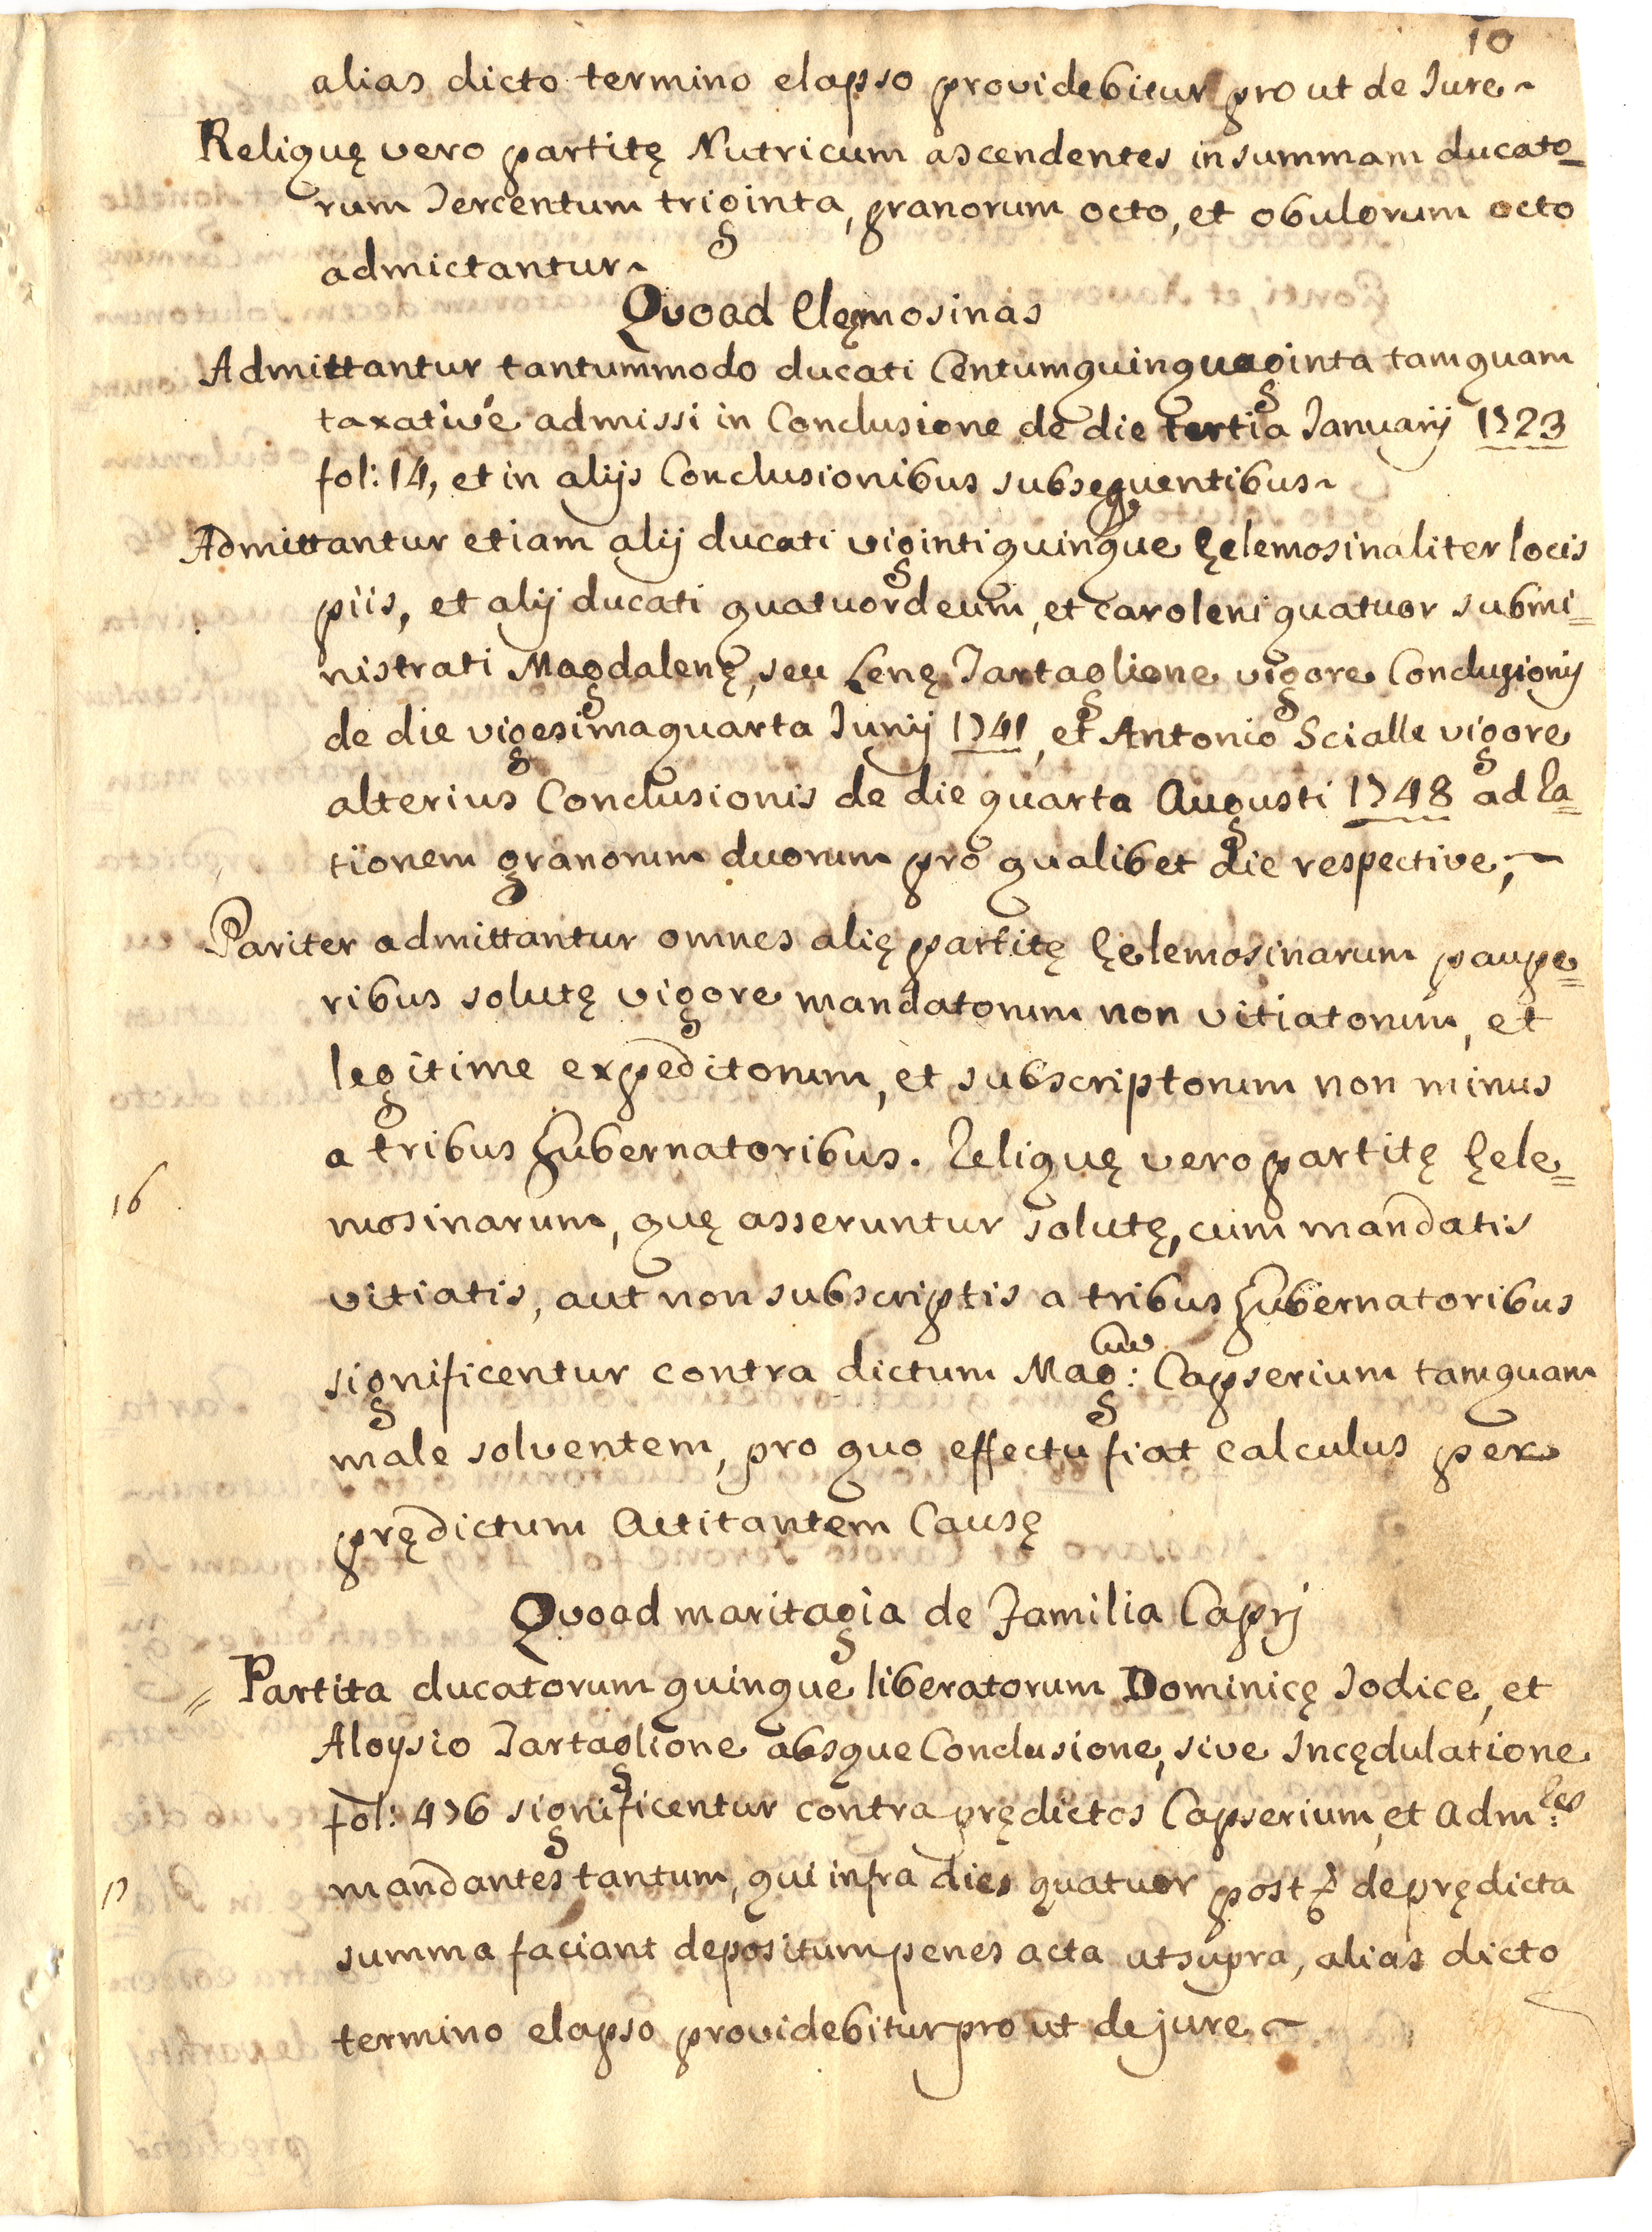 10
alias dicto termino elapso providebitur pro ut de Jure~
Reliquę vero partitę Nutricum ascendentes in summam ducato=
rum Tercentum triginta, granorum octo, et obulorum octo
admictantur~
Quoad Elęmosinas
Admittantur tantummodo ducati Centumquinquaginta tamquam
taxative admissi in Conclusione de die tertia Januarij 1723
fol: 14, et in alijs Conclusionibus subsequentibus~
Admittantur etiam alij ducati vigintiquinque Ęelemosinaliter locis
piis, et alij ducati quatuordecim, et caroleni quatuor submi=
nistrati Magdalenę, seu Lenę Tartaglione vigore Conclusionis
de die vigesimaquarta Junij 1741, et Antonio Scialle vigore
alterius Conclusionis de die quarta Augusti 1748 ad Ra=
tionem granorum duorum pro qualibet die respective,~
Pariter admittantur omnes alię partitę Ęelemosinarum paupe=
ribus solutę vigore mandatorum non vitiatorum, et
legitime expeditorum, et subscriptorum non minus
a tribus Gubernatoribus. Reliquę vero partitę Ęele=
16
mosinarum, quę asseruntur solutę, cum mandatis
vitiatis, aut non subscriptis a tribus Gubernatoribus
significentur contra dictum Mag:cum Capserium tamquam
male solventem, pro quo effectu fiat calculus per
prędictum Actitantem Causę
Quoad maritagia de Familia Caprij
= Partita ducatorum quinque liberatorum Dominicę Jodice, et
Aloysio Tartaglione absque Conclusione, sive Incędulatione
fol: 476 significentur contra prędictos Capserium, et Adm:res
17
mandantes tantum, qui infra dies quatuor post de prędicta
summa faciant depositum penes acta ut supra, alias dicto
termino elapso providebitur pro ut de jure~